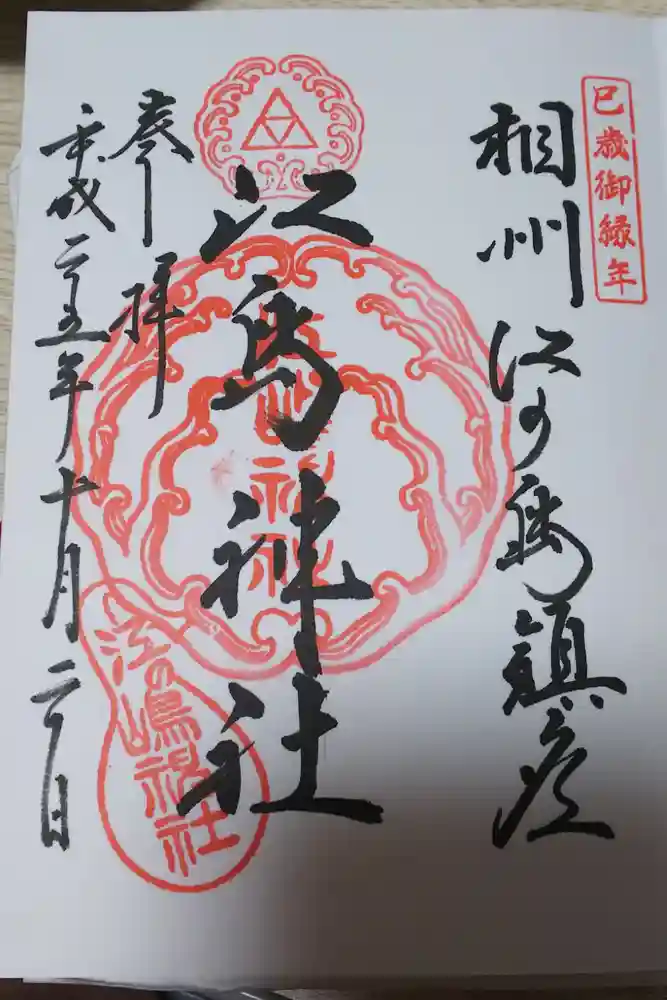 巳歳御縁年
相州江の島鎮座
江島神社
奉拝
平成二十五年十月二十日
江の嶋神社